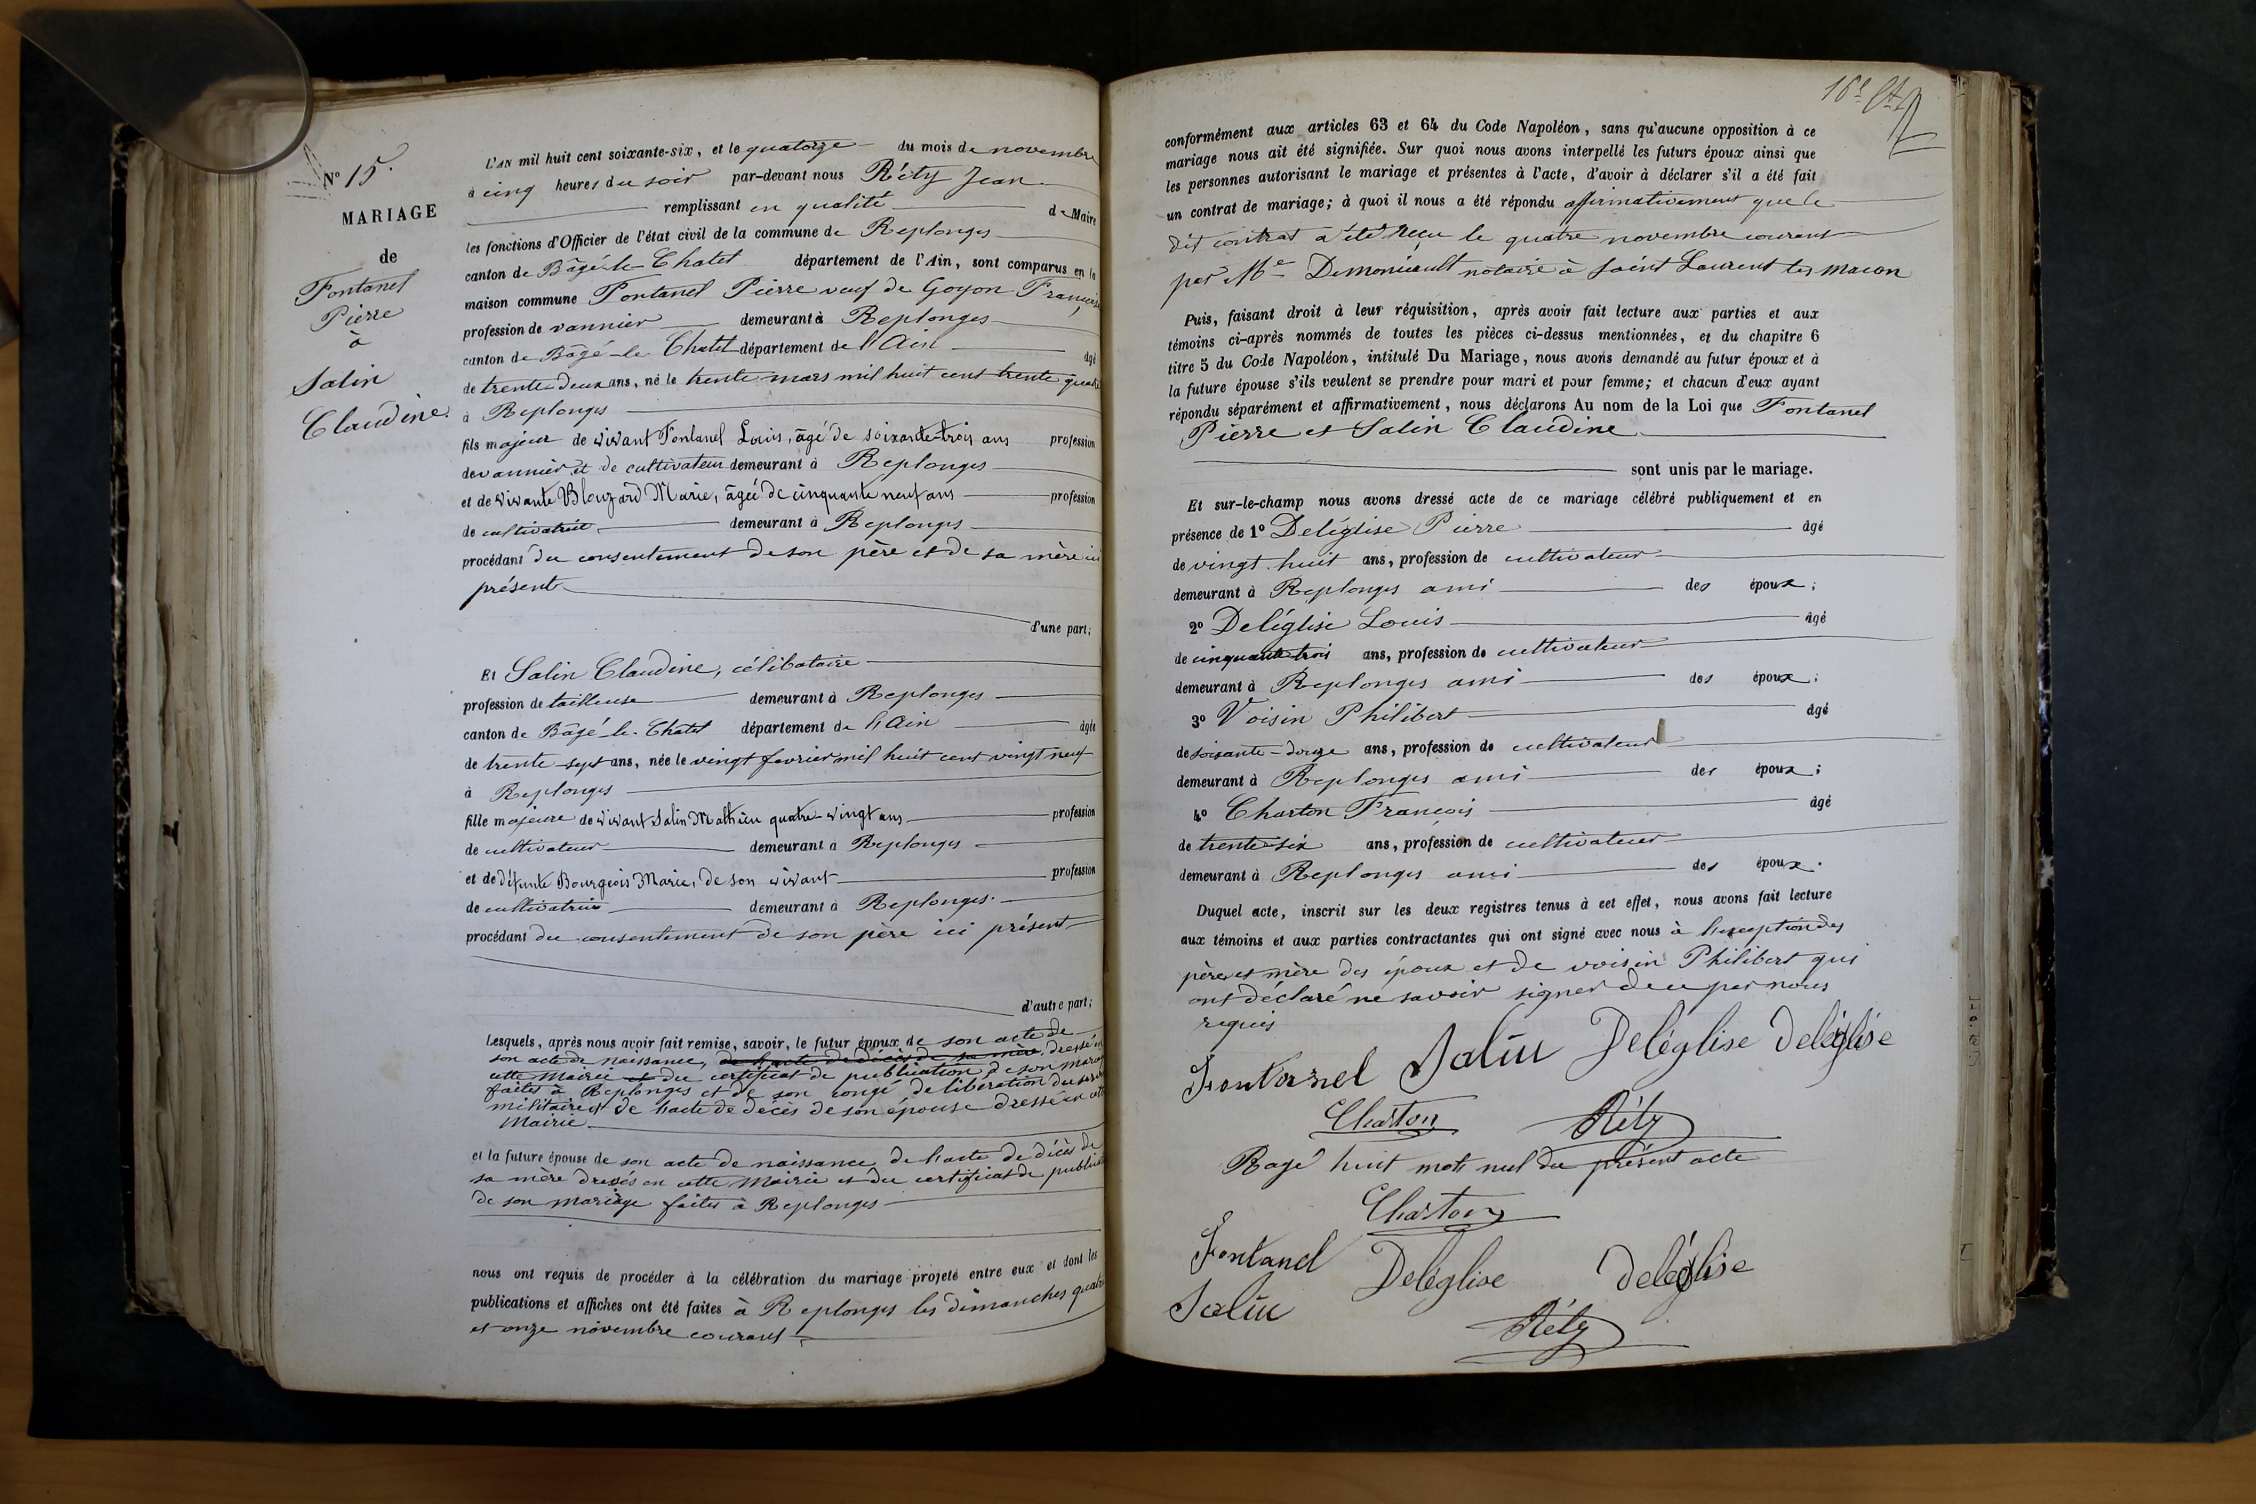 N° 15.
MARIAGE
de
Fontanel
Pierre
à
Salin
Claudine.
L'AN mil huit cent soixante-six, et le quatorze du mois de novembre
à cinq heures du soir par-devant nous Réty Jean
remplissant en qualité de Maire
les fonctions d'Officier de l'état civil de la commune de Replonges
canton de Bâgé-le-Chatel département de l'Ain, sont comparus en la
maison commune Fontanel Pierre veuf de Goyon Françoise,
profession de vannier demeurant à Replonges
canton de Bâgé-le Chatel département de l'Ain âgé
de trente deux ans, né le trente mars mil huit cent trente quatre
à Replonges
fils majeur de vivant Fontanel Louis, âgé de soixante-trois ans profession
de vannier et de cultivateur demeurant à Replonges
et de vivante Blouzard Marie, âgée de cinquante neuf ans profession
de cultivatrice demeurant à Replonges
procédant du consentement de son père et de sa mère ici
présent
d'une part;
Et Salin Claudine, célibataire
profession de tailleuse demeurant à Replonges
canton de Bâgé-le-Chatel département de l'Ain âgée
de trente-sept ans, née le vingt fevrier mil huit cent vingt neuf
à Replonges
fille majeure de vivant Salin Mathieu quatre-vingt ans profession
de cultivateur demeurant à Replonges
et de défunte Bourgeois Marie, de son vivant profession
de cultivatrice demeurant à Replonges.
procédant du consentement de son père ici présent
d'autre part;
Lesquels, après nous avoir fait remise, savoir, le futur époux de son acte de
son acte de naissance, de l'acte de décès de sa mère, dressé en
cette Mairie et du certificat de publication de son mariage
faites à Replonges et de son congé de libération du service
militaire et de l'acte de décès de son épouse dressé en cette
Mairie
et la future épouse de son acte de naissance de l'acte de décès de
sa mère dressés en cette Mairie et du certificat de publication
de son mariage faites à Replonges
nous ont requis de procéder à la célébration du mariage projeté entre eux et dont les
publications et affiches ont été faites à Replonges les dimanches quatre
et onze novembre courant
conformément aux articles 63 et 64 du Code Napoléon, sans qu'aucune opposition à ce
mariage nous ait été signifiée. Sur quoi nous avons interpellé les futurs époux ainsi que
les personnes autorisant le mariage et présentes à l'acte, d'avoir à déclarer s'il a été fait
un contrat de mariage; à quoi il nous a été répondu affirmativement que le
dit contrat a été reçu le quatre novembre courant
par Me Demoniault notaire à Saint Laurent les macon
Puis, faisant droit à leur réquisition, après avoir fait lecture aux parties et aux
témoins ci-après nommés de toutes les pièces ci-dessus mentionnées, et du chapitre 6
titre 5 du Code Napoléon, intitulé Du Mariage, nous avons demandé au futur époux et à
la future épouse s'ils veulent se prendre pour mari et pour femme; et chacun d'eux ayant
répondu séparément et affirmativement, nous déclarons Au nom de la Loi que Fontanel
Pierre et Salin Claudine
sont unis par le mariage.
Et sur-le-champ nous avons dressé acte de ce mariage célébré publiquement et en
présence de 1° Deléglise Pierre âgé
de vingt-huit ans, profession de cultivateur
demeurant à Replonges ami des époux;
2° Deléglise Louis âgé
de cinquante trois ans, profession de cultivateur
demeurant à Replonges ami des époux;
3° Voisin Philibert âgé
de soixante-douze ans, profession de cultivateur
demeurant à Replonges ami des époux;
4° Charton François âgé
de trente-six ans, profession de cultivateur
demeurant à Replonges ami des époux.
Duquel acte, inscrit sur les deux registres tenus à cet effet, nous avons fait lecture
aux témoins et aux parties contractantes qui ont signé avec nous à l'exception des
père et mère des époux et de voisin Philibert qui
ont déclaré ne savoir signer de ce par nous
requis
Fontanel Salin Deléglise Deléglise
Charton Réty
Rayé huit mots nul du présent acte
Charton
Fontanel Deléglise Deléglise
Salin
Réty